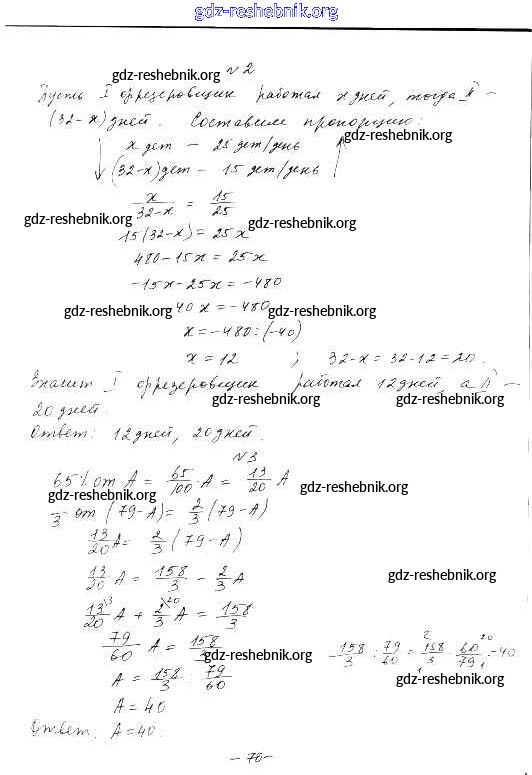 gdz-reshebnik.org
gdz-reshebnik.org
№2
Пусть I фрезеровщик работал x дней, тогда II –
(32-x) дней. Составим пропорцию:
gdz-reshebnik.org
x дет – 25 дет/день
(32-x) дет – 15 дет/день
x/(32-x) = 15/25
gdz-reshebnik.org gdz-reshebnik.org
15(32-x) = 25x
480-15x = 25x
-15x-25x = -480
gdz-reshebnik.org 40x = -480 gdz-reshebnik.org
x = -480:(-40)
x = 12 ; 32-x = 32-12 = 20.
Значит I фрезеровщик работал 12 дней, а II –
gdz-reshebnik.org gdz-reshebnik.org
20 дней.
Ответ: 12 дней, 20 дней.
№3
65% от A = 65/100 · A = 13/20 A
gdz-reshebnik.org gdz-reshebnik.org
/3 от (79-A) = 2/3 (79-A)
13/20 A = 2/3 (79-A)
13/20 A = 158/3 - 2/3 A
gdz-reshebnik.org
13/20 \3 A + 2/3 \20 A = 158/3
79/60 A = 158/3
gdz-reshebnik.org
158/3 : 79/60 = 158/3 · 60/79 = 40
gdz-reshebnik.org
A = 158/3 : 79/60
A = 40
Ответ: A = 40.
- 70 -